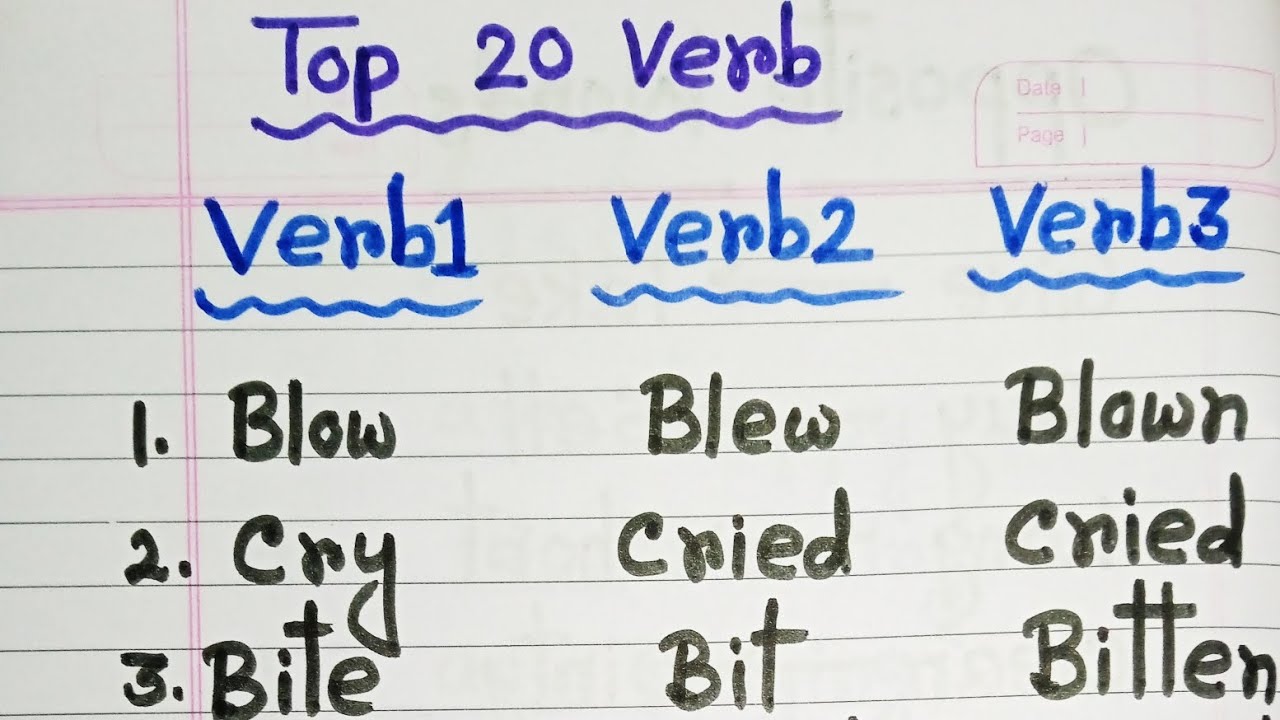 Top 20 Verb
Date
Page
Verb1 Verb2 Verb3
1. Blow Blew Blown
2. Cry Cried Cried
3. Bite Bit Bitten